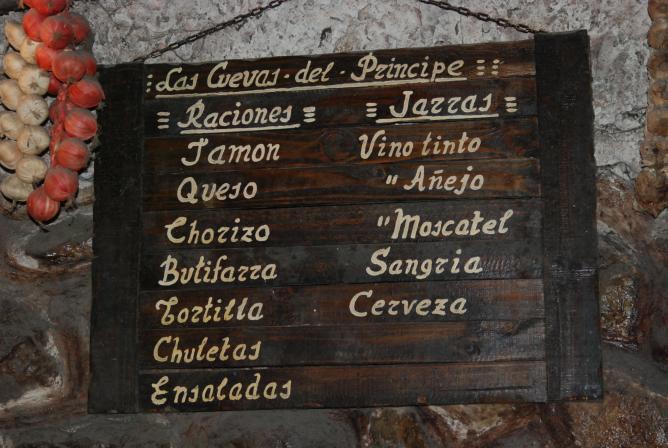 Las Cuevas - del - Principe
Raciones
Jamon
Queso
Chorizo
Butifarra
Tortilla
Chuletas
Ensaladas
Jarras
Vino tinto
" Añejo
" Moscatel
Sangria
Cerveza